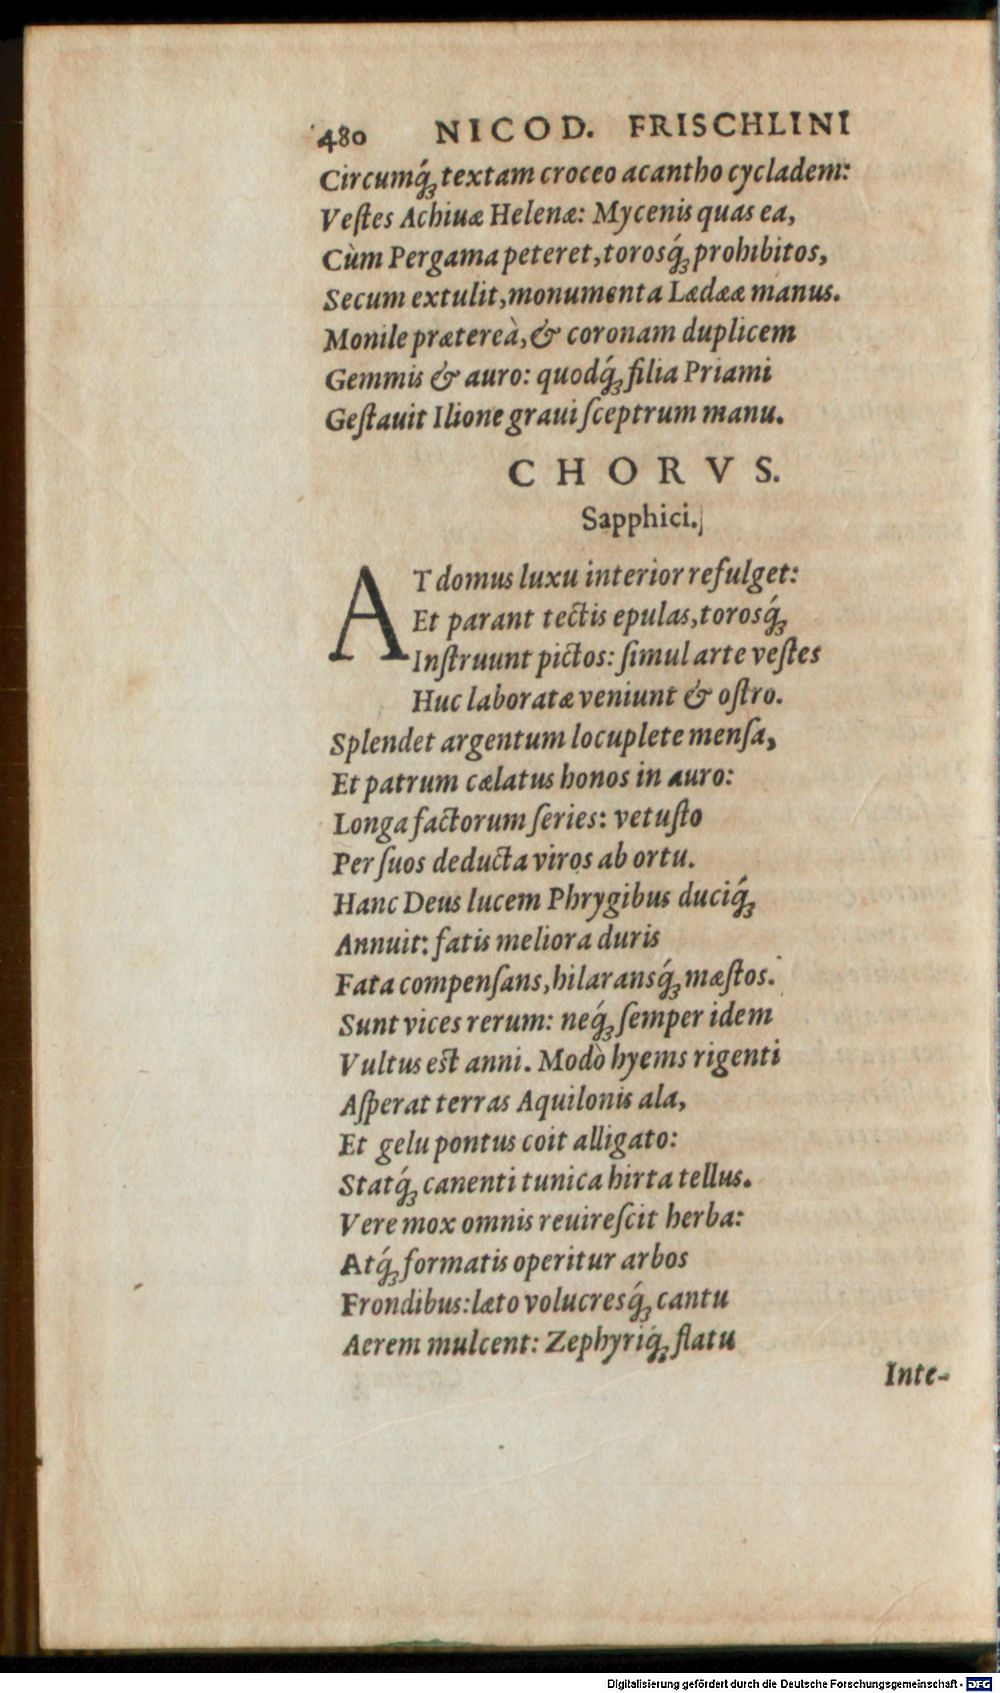 480 NICOD. FRISCHLINI
Circumq́ꝫ textam croceo acantho cycladem:
Veſtes Achiuæ Helenæ: Mycenis quas ea,
Cùm Pergama peteret, torosq́ꝫ prohibitos,
Secum extulit, monumenta Lædææ manus.
Monile prætereà, & coronam duplicem
Gemmis & auro: quodq́ꝫ filia Priami
Geſtauit Ilione graui ſceptrum manu.
CHORVS.
Sapphici.
AT domus luxu interior refulget:
Et parant tectis epulas, torosq́ꝫ
Inſtruunt pictos: ſimul arte veſtes
Huc laboratæ veniunt & oſtro.
Splendet argentum locuplete menſa,
Et patrum cælatus honos in auro:
Longa factorum ſeries: vetuſto
Per ſuos deducta viros ab ortu.
Hanc Deus lucem Phrygibus duciq́ꝫ
Annuit: fatis meliora duris
Fata compenſans, hilaransq́ꝫ mæſtos.
Sunt vices rerum: neq́ꝫ ſemper idem
Vultus est anni. Modò hyems rigenti
Aſperat terras Aquilonis ala,
Et gelu pontus coit alligato:
Statq́ꝫ canenti tunica hirta tellus.
Vere mox omnis reuireſcit herba:
Atq́ꝫ formatis operitur arbos
Frondibus: læto volucresq́ꝫ cantu
Aerem mulcent: Zephyriq́ꝫ flatu
Inte-
Digitalisierung gefördert durch die Deutsche Forschungsgemeinschaft - DFG